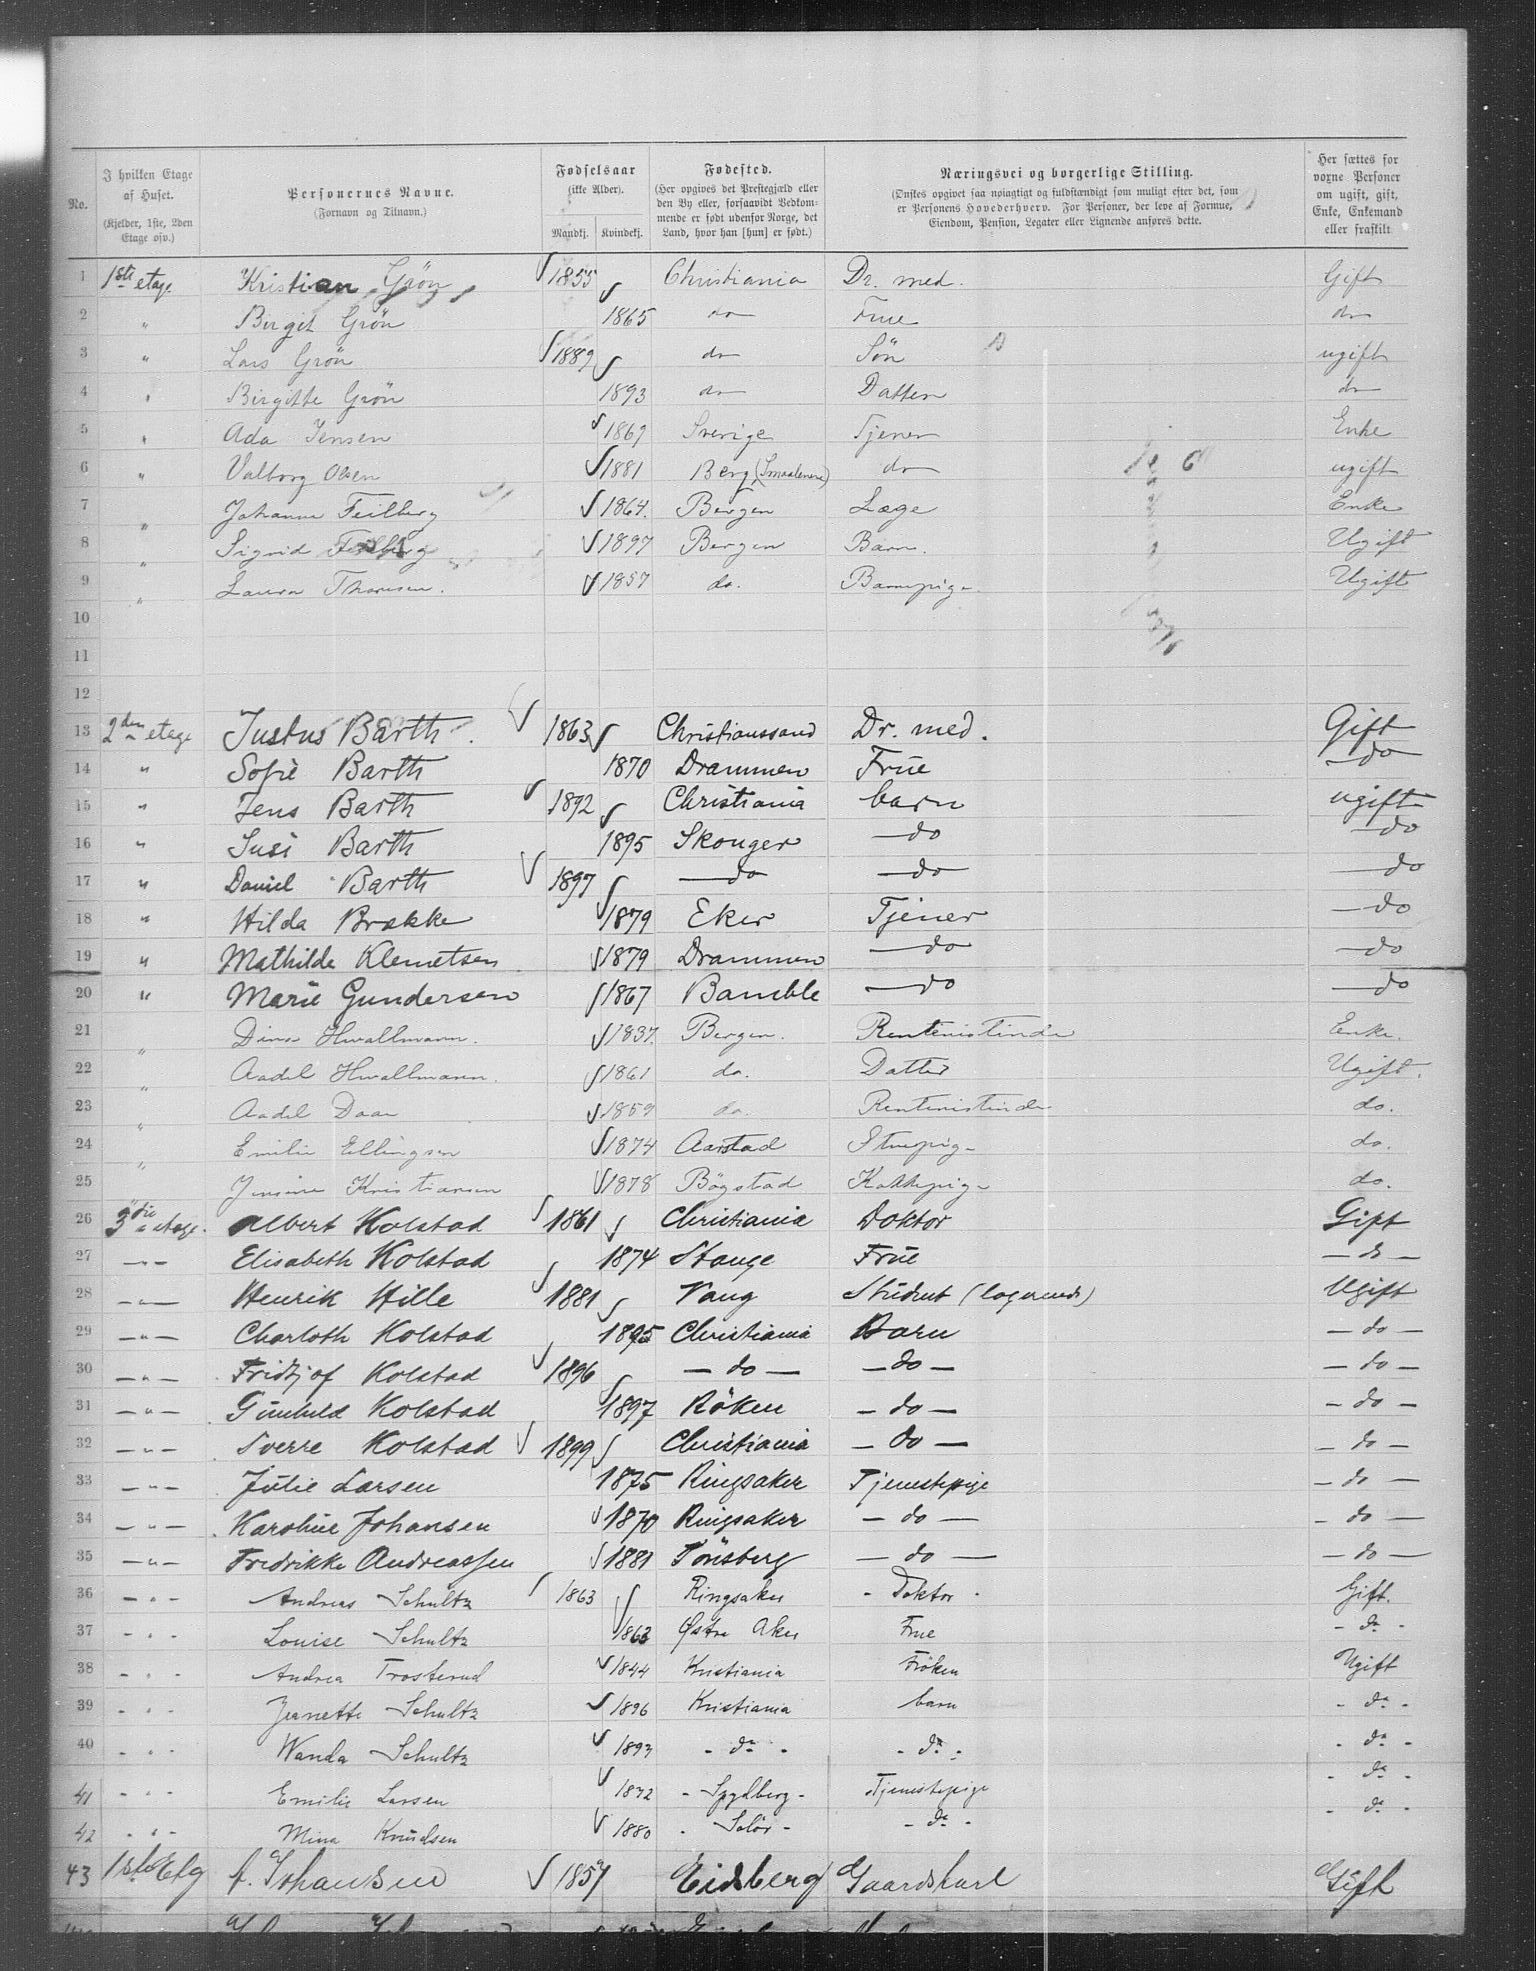 No.
I hvilken Etage af Huset. (Kjelder, 1ste, 2den Etage osv.)
Personernes Navne. (Fornavn og Tilnavn.)
Fødselsaar (ikke Alder). Mandkj. Kvindekj.
Fødested. (Her opgives det Prestegjæld eller den By eller, forsaavidt Vedkommende er født udenfor Norge, det Land, hvor han [hun] er født.)
Næringsvei og borgerlige Stilling. (Ønskes opgivet saa nøiagtigt og fuldstændigt som muligt efter det, som er Personens Hovederhverv. For Personer, der leve af Formue, Eiendom, Pension, Legater eller Lignende anføres dette.
Her sættes for voxne Personer om ugift, gift, Enke, Enkemand eller fraskilt
1 1ste etage Kristian Grön 1855 Christiania Dr. med. Gift
2 " Birgit Grön 1865 do Frue do
3 " Lars Grön 1889 do Sön ugift
4 " Birgitte Grön 1893 do Datter do
5 " Ada Jensen 1869 Sverige Tjener Enke
6 " Valborg Olsen 1881 Berg (Smaalenene) do ugift
7 " Johanne Feilberg 1864. Bergen Læge Enke
8 " Sigrid Feilberg 1897 Bergen Barn. Ugift
9 " Laura Thoresen. 1857 do. Barnepige Ugift
10
11
12
13 2den etage Justus Barth. 1863 Christianssand Dr. med. Gift
14 " Sofie Barth 1870 Drammen Frue do
15 " Jens Barth 1892 Christiania barn ugift
16 " Susi Barth 1895 Skouger do do
17 " Daniel Barth 1897 do do do
18 " Hilda Brakke 1879 Eker Tjener do
19 " Mathilde Klemetsen 1879 Drammen do do
20 " Marie Gundersen 1867 Bamble do do
21 " Dina Hwallmann. 1837. Bergen. Rentenistinde Enke.
22 " Aadel Hwallmann. 1861 do. Datter Ugift.
23 " Aadel Daae 1859 do. Rentenistinde do.
24 " Emilie Ellingsen 1874 Aarstad Stuepige do.
25 " Jensine Kristiansen 1878 Bögstad Kokkepige do.
26 3die etage. Albert Kolstad 1861 Christiania Doktor Gift
27 — " — Elisabeth Kolstad 1874 Stange Frue — do —
28 — " — Henrik Hille 1881 Vang Student (logerende) Ugift
29 — " — Charloth Kolstad 1895 Christiania Barn — do —
30 — " — Fridtjof Kolstad 1896 — do — — do — — do —
31 — " — Gunhild Kolstad 1897 Röken — do — — do —
32 — " — Sverre Kolstad 1899 Christiania — do — — do —
33 — " — Julie Larsen 1875 Ringsaker Tjenestepige — do —
34 — " — Karoline Johansen 1870 Ringsaker — do — — do —
35 — " — Fredrikke Andreassen 1881 Tönsberg — do — — do —
36 — " — Andreas Schultz 1863 Ringsaker - Doktor - Gift.
37 - " - Louise Schultz 1863 Østre Aker Frue - do -
38 - " - Andrea Trosterud 1844 Kristiania Fröken Ugift
39 - " - Jeanette Schultz 1896 Kristiania barn - do -
40 - " - Wanda Schultz 1893 - do - - do - - do -
41 - " - Emilie Larsen 1872 - Spydberg - Tjenestepige - do -
42 - " - Mina Knudsen 1880 - Solör - - do - - do -
43 1ste Etg Johansen 1857 Eidsberg Gaardskarl Gift